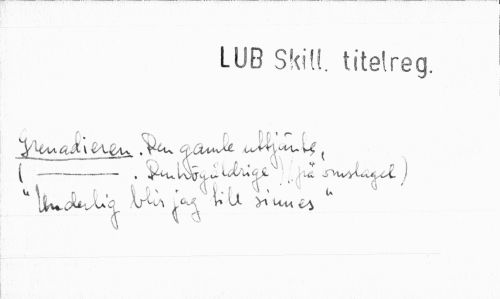 LUB Skill. titelreg.
Grenadieren. Den gamle uttjänte,
( ——— . Den högåldrige) (på omslaget)
"Underlig blir jag till sinnes"